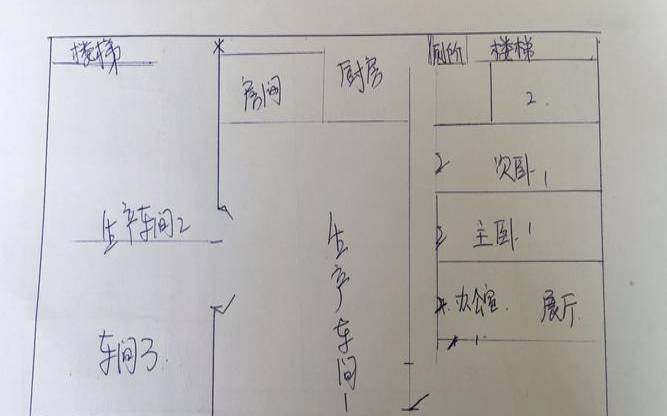 楼梯
厕所 楼梯
房间
厨房
2.
2 次卧1
生产车间2
生产车间1
2 主卧1
办公室. 展厅
车间3.